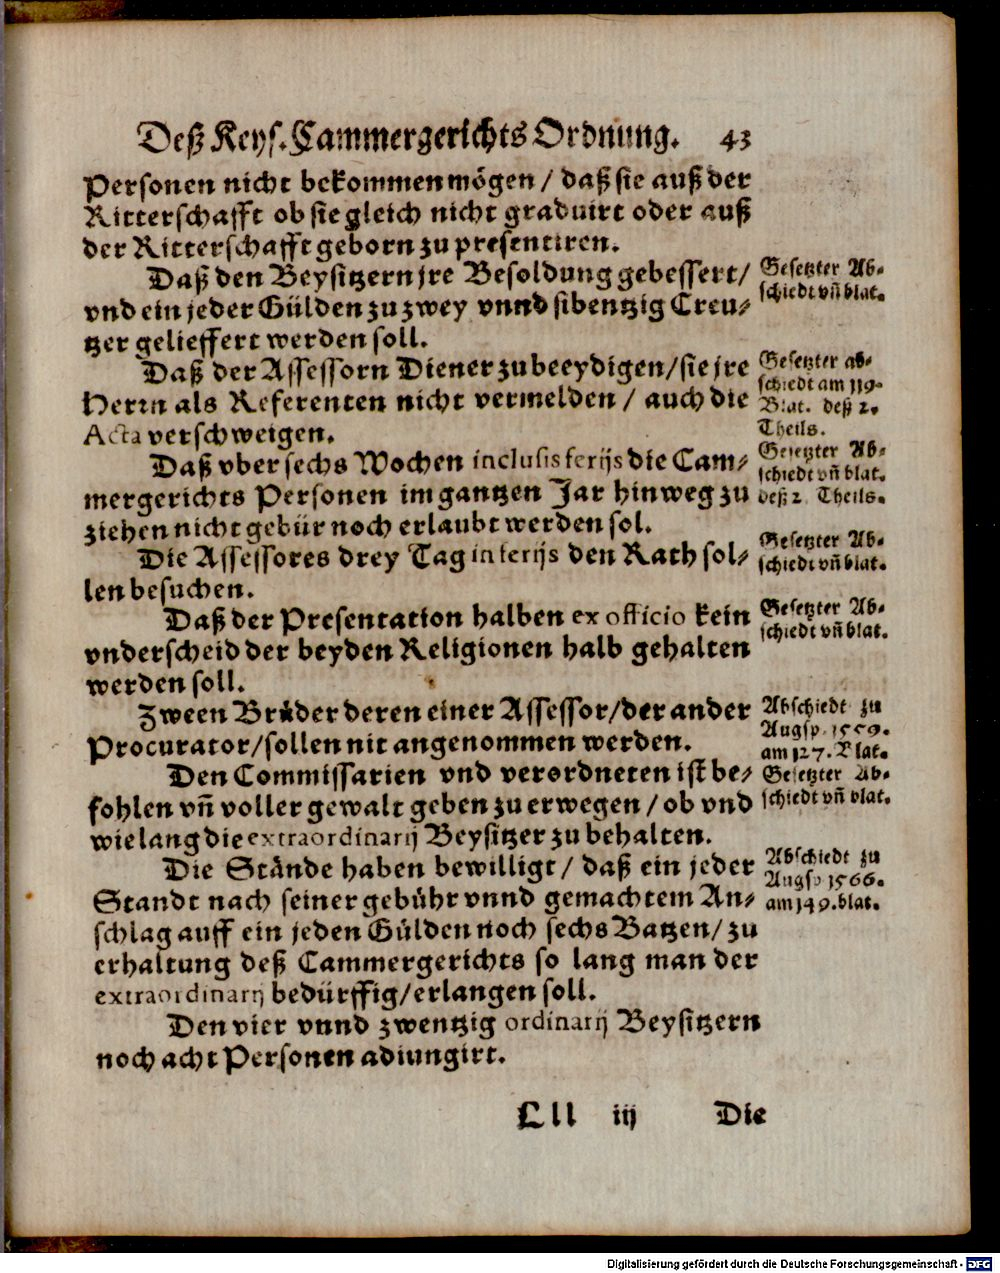 Deß Keys. Cammergerichts Ordnung. 43
Personen nicht bekommen mögen / daß sie auß der
Ritterschafft ob sie gleich nicht graduirt oder auß
der Ritterschafft geborn zu presentiren.
Daß den Beysitzern jre Besoldung gebessert /
vnd ein jeder Gülden zu zwey vnnd sibentzig Creu⸗
tzer gelieffert werden soll.
Daß der Assessorn Diener zu beeydigen / sie jre
Herrn als Referenten nicht vermelden / auch die
Acta verschweigen.
Daß vber sechs Wochen inclusis ferijs die Cam⸗
mergerichts Personen im gantzen Jar hinweg zu
ziehen nicht gebür noch erlaubt werden sol.
Die Assessores drey Tag in ferijs den Rath sol⸗
len besuchen.
Daß der Presentation halben ex officio kein
vnderscheid der beyden Religionen halb gehalten
werden soll.
Zween Brüder deren einer Assessor / der ander
Procurator / sollen nit angenommen werden.
Den Commissarien vnd verordneten ist be⸗
fohlen vñ voller gewalt geben zu erwegen / ob vnd
wie lang die extraordinarij Beysitzer zu behalten.
Die Stände haben bewilligt / daß ein jeder
Standt nach seiner gebühr vnnd gemachtem An⸗
schlag auff ein jeden Gülden noch sechs Batzen / zu
erhaltung deß Cammergerichts so lang man der
extraordinarij bedürffig / erlangen soll.
Den vier vnnd zwentzig ordinarij Beysitzern
noch acht Personen adiungirt.
Lll iij Die
Gesetzter Ab⸗
schiedt vñ blat.
Gesetzter ab⸗
schiedt am 119.
Blat. deß 2.
Theils.
Gesetzter Ab⸗
schiedt vñ blat.
deß 2 Theils.
Gesetzter Ab⸗
schiedt vñ blat.
Gesetzter Ab⸗
schiedt vñ blat.
Abschiedt zu
Augsp. 1559.
am 127. Blat.
Gesetzter Ab⸗
schiedt vñ blat.
Abschiedt zu
Augsp 1566.
am 149. blat.
Digitalisierung gefördert durch die Deutsche Forschungsgemeinschaft - DFG